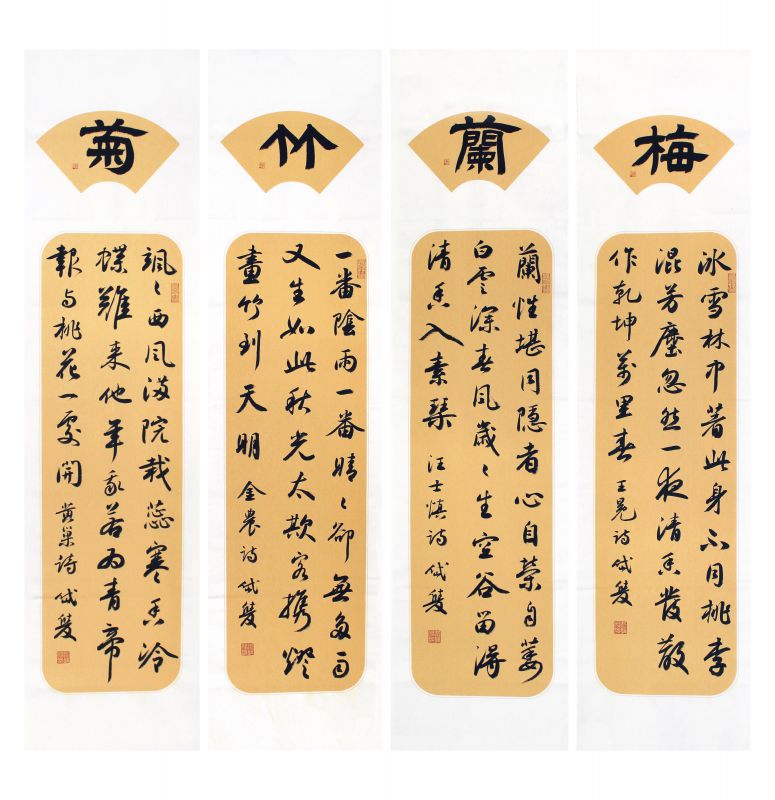 梅
冰雪林中著此身不同桃李
混芳塵忽然一夜清香發散
作乾坤萬里春 王冕詩
蘭
蘭性堪同隱者心自榮自萎
白雲深春風歲々生空谷留得
清香入素琴 汪士慎詩
竹
一番陰雨一番晴々卻無多雨
又生如此秋光太欺客攜燈
畫竹到天明 金農詩
菊
颯々西風滿院栽蕊寒香冷
蝶難來他年我若為青帝
報与桃花一處開 黃巢詩